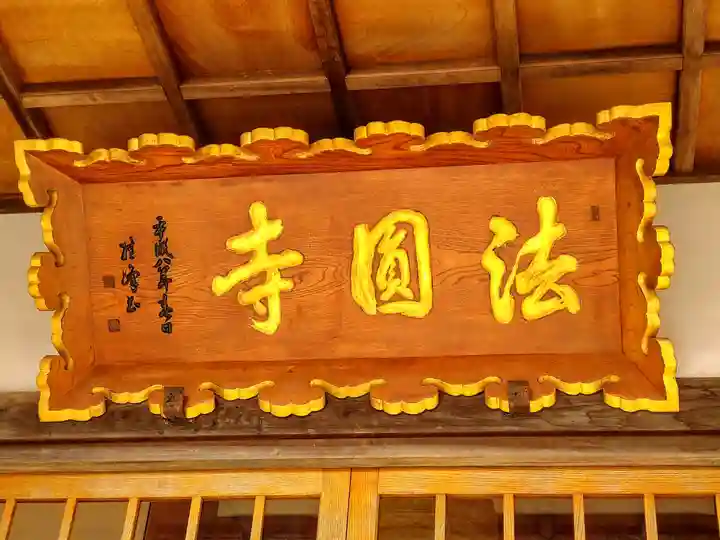 法圓寺
平成八年春日